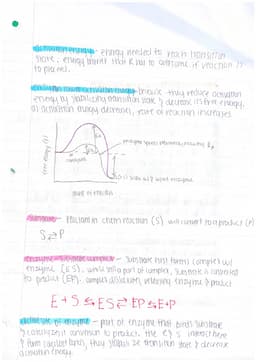 activation energy - energy needed to reach transition
state; energy barrier that R has to overcome if reaction is
to proceed.
enzymes lower activation energy because they reduce activation
energy by stabilizing transition state & decrease its free energy.
as activation energy decreases, rate of reaction increases
free energy (G)
enzyme speeds reaction by reducing EA
ΔG is same w/ & w/out enzyme
course of reaction
substrate - reactant in chem reaction (S) will convert to a product (P)
S ⇌ P
enzyme-substrate complex - substrate first forms complex w/
enzyme (ES). while still a part of complex, substrate is converted
to product (EP). complex dissociates, releasing enzyme & product
E + S ⇆ ES ⇌ EP ⇆ E + P
active site of enzyme - part of enzyme that binds substrate
& catalyzes its conversion to product. the E & S interact here
& form
they stabilize the transition state & decrease
activation energy.